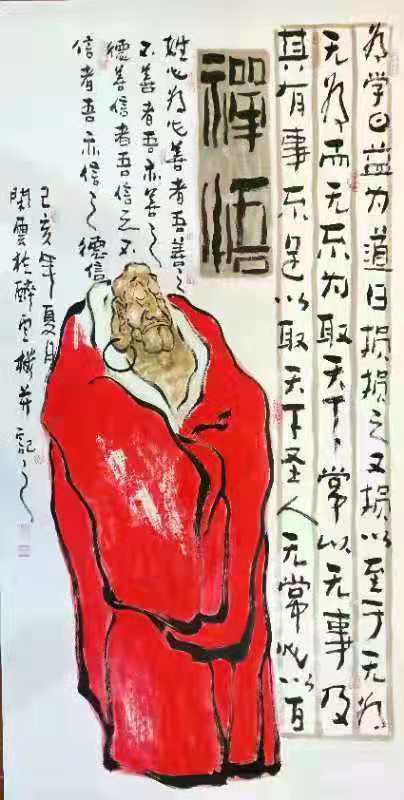 为学日益为道日损损之又损以至于无为
无为而无不为取天下常以无事及
其有事不足以取天下圣人无常心以百
禪悟
姓心为心善者吾善之
不善者吾亦善之
德善信者吾信之不
信者吾亦信之德信
己亥年夏月
閑雲於醉雲樓并記之